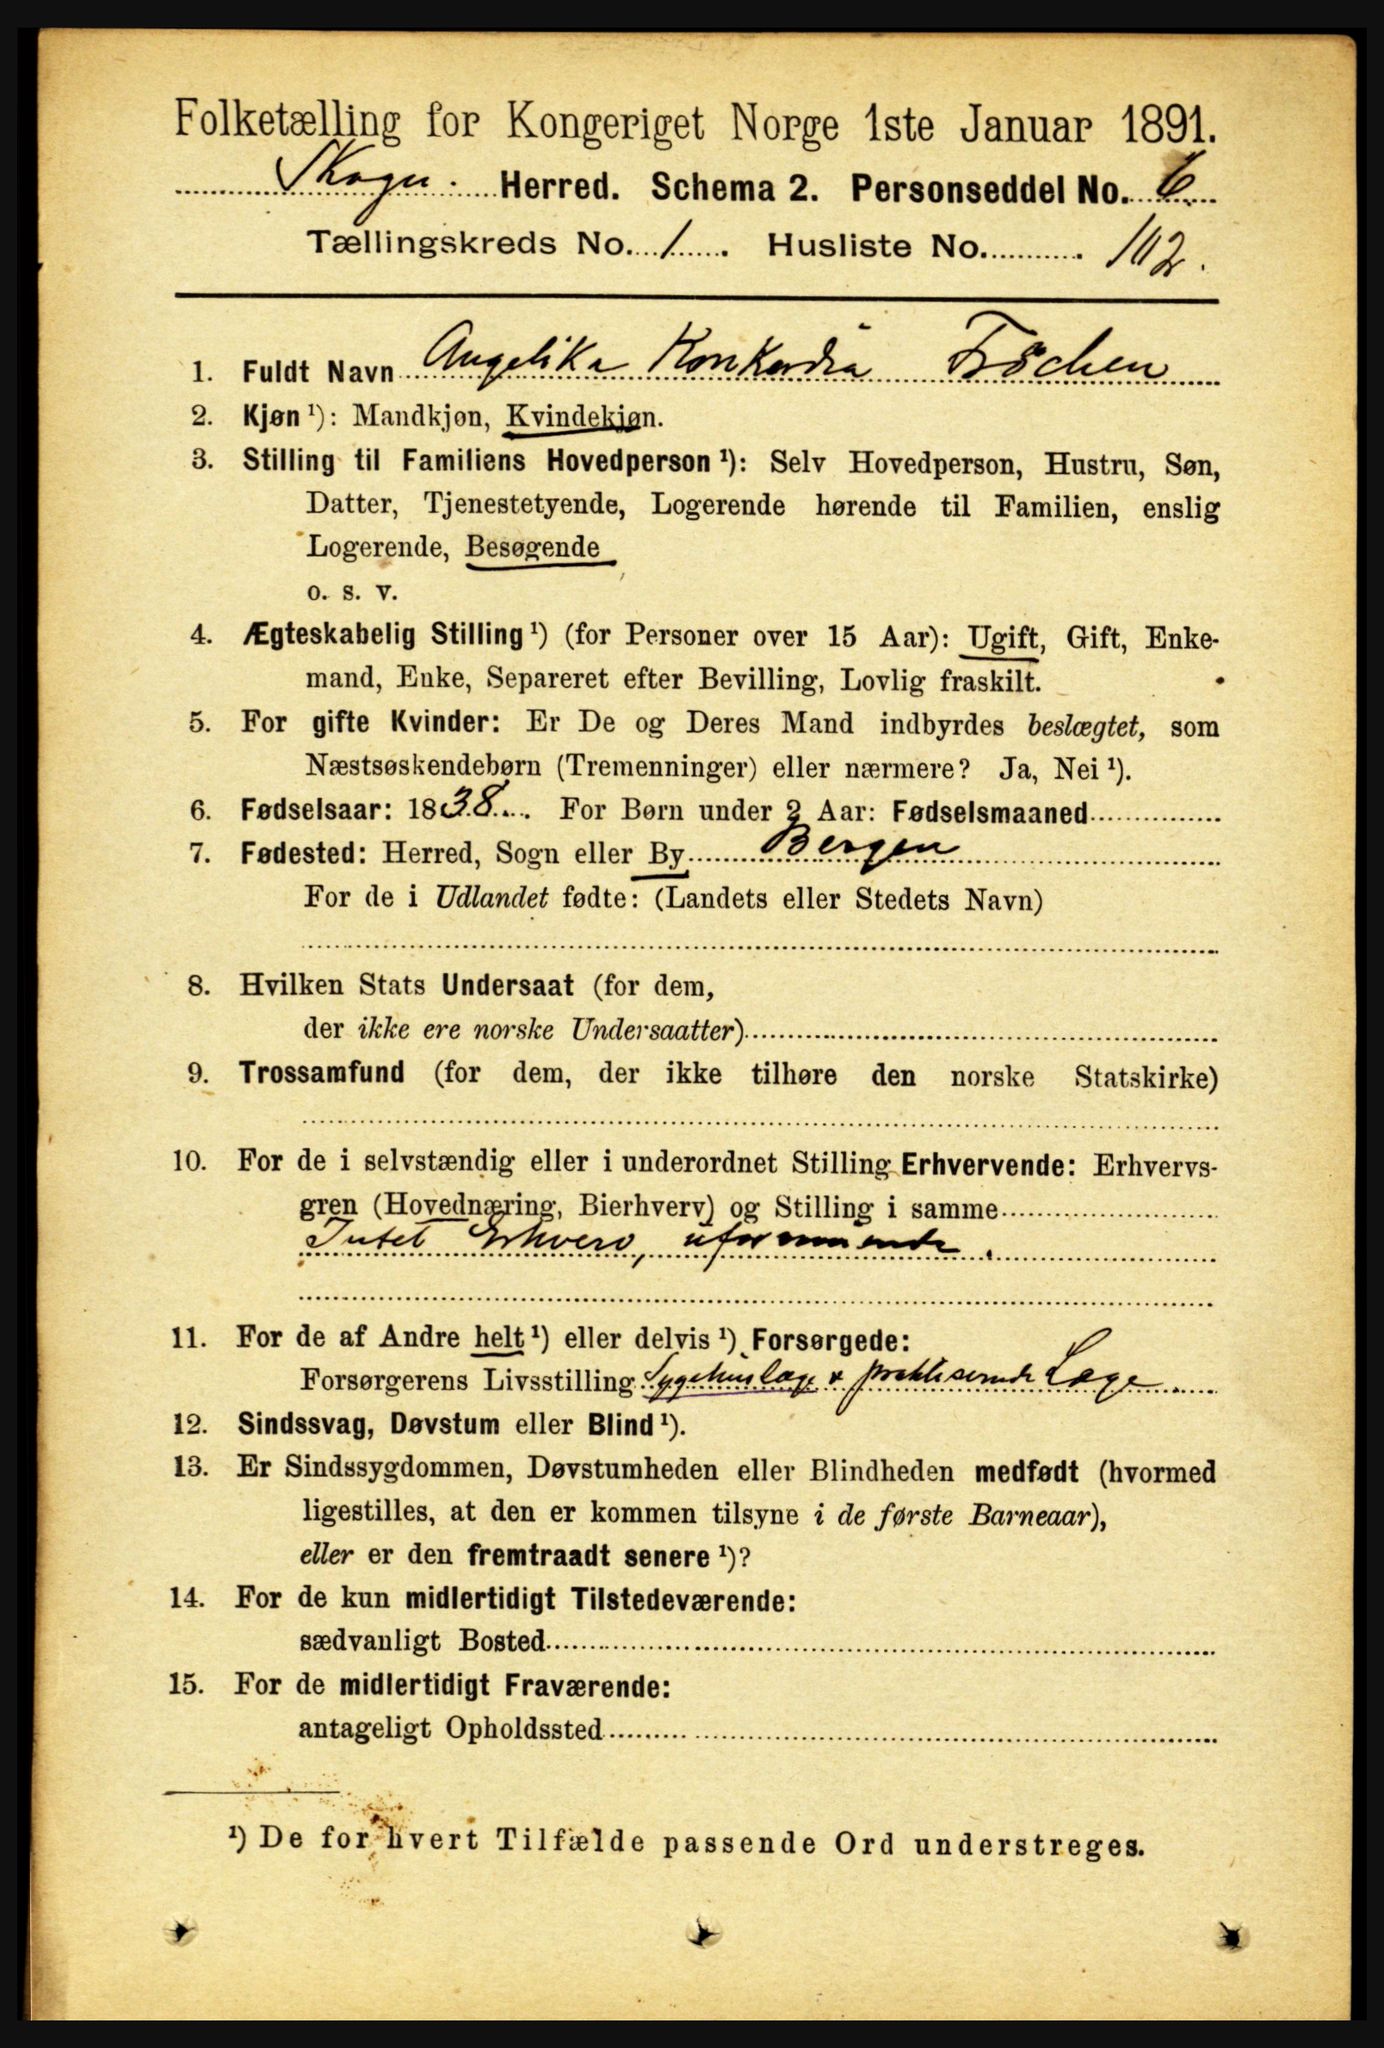 Folketælling for Kongeriget Norge 1ste Januar 1891.
Skogn. Herred. Schema 2. Personseddel No. 6.
Tællingskreds No. 1. Husliste No. 102.
1. Fuldt Navn Angelika Konkordia Fröchen
2. Kjøn ¹): Mandkjøn, Kvindekjøn.
3. Stilling til Familiens Hovedperson ¹): Selv Hovedperson, Hustru, Søn,
Datter, Tjenestetyende, Logerende hørende til Familien, enslig
Logerende, Besøgende
o. s. v.
4. Ægteskabelig Stilling ¹) (for Personer over 15 Aar): Ugift, Gift, Enke-
mand, Enke, Separeret efter Bevilling, Lovlig fraskilt.
5. For gifte Kvinder: Er De og Deres Mand indbyrdes beslægtet, som
Næstsøskendebørn (Tremenninger) eller nærmere? Ja, Nei ¹).
6. Fødselsaar: 1838. For Børn under 2 Aar: Fødselsmaaned
7. Fødested: Herred, Sogn eller By Bergen
For de i Udlandet fødte: (Landets eller Stedets Navn)
8. Hvilken Stats Undersaat (for dem,
der ikke ere norske Undersaatter)
9. Trossamfund (for dem, der ikke tilhøre den norske Statskirke)
10. For de i selvstændig eller i underordnet Stilling Erhvervende: Erhvervs-
gren (Hovednæring, Bierhverv) og Stilling i samme
Intet Erhverv, uformuende.
11. For de af Andre helt ¹) eller delvis ¹) Forsørgede:
Forsørgerens Livsstilling Sygehuslæge & praktiserende Læge.
12. Sindssvag, Døvstum eller Blind ¹).
13. Er Sindssygdommen, Døvstumheden eller Blindheden medfødt (hvormed
ligestilles, at den er kommen tilsyne i de første Barneaar),
eller er den fremtraadt senere ¹)?
14. For de kun midlertidigt Tilstedeværende:
sædvanligt Bosted
15. For de midlertidigt Fraværende:
antageligt Opholdssted
¹) De for hvert Tilfælde passende Ord understreges.